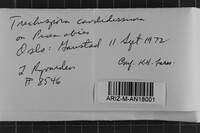 Trechispora candidissima
on Picea abies
Oslo: Gaustad 11 Sept 1972
L Ryvarden
# 8546
Conf. KH. Larss.
ARIZ-M-AN18001